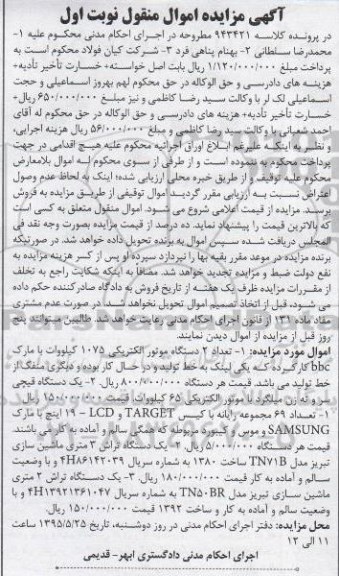 آگهی مزایده اموال منقول نوبت اول
در پرونده کلاسه ۹۴۳۴۲۱ مطروحه در اجرای احکام مدنی محکوم علیه ۱-
محمدرضا سلطانی ۲- بهنام پناهی فرد ۳- شرکت کیان فولاد محکوم است به
پرداخت مبلغ ۱/۱۲۰/۰۰۰/۰۰۰ ریال بابت اصل خواسته+ خسارت تأخیر تأدیه+
هزینه های دادرسی و حق الوکاله در حق محکوم لهم بهروز اسماعیلی و حجت
اسماعیلی لک لر با وکالت سید رضا کاظمی و نیز مبلغ ۶۵۰/۰۰۰/۰۰۰ ریال+
خسارت تأخیر تأدیه+ هزینه های دادرسی و حق الوکاله در حق محکوم له آقای
احمد شعبانی با وکالت سید رضا کاظمی و مبلغ ۵۶/۰۰۰/۰۰۰ ریال هزینه اجرایی،
و نظر به اینکه علیرغم ابلاغ اوراق اجرائیه محکوم علیه هیچ اقدامی در جهت
پرداخت محکوم به ننموده است و از طرفی از سوی محکوم له اموال بلامعارض
محکوم علیه توقیف و از طریق خبره محلی ارزیابی شده؛ اینک به لحاظ عدم وصول
اعتراض نسبت به ارزیابی مقرر گردید اموال توقیفی از طریق مزایده به فروش
برسد. مزایده از قیمت اعلامی شروع می شود. اموال منقول متعلق به کسی است
که بالاترین قیمت را پیشنهاد نماید. ده درصد از قیمت مزایده بصورت وجه نقد فی
المجلس دریافت شده سپس اموال به برنده تحویل داده خواهد شد. در صورتیکه
برنده مزایده در موعد مقرر بقیه بها را نپردازد سپرده او پس از کسر هزینه مزایده به
نفع دولت ضبط و مزایده تجدید خواهد شد. مضافاً به اینکه شکایت راجع به تخلف
از مقررات مزایده ظرف یک هفته از تاریخ فروش به دادگاه صادرکننده حکم داده
می شود، قبل از اتخاذ تصمیم اموال تحویل نخواهد شد. در صورت عدم مشتری
مفاد ماده ۱۳۱ از قانون اجرای احکام مدنی رعایت خواهد شد. طالبین میتوانند پنج
روز قبل از مزایده از اموال دیدن نمایند.
اموال مورد مزایده: ۱- تعداد ۲ دستگاه موتور الکتریکی ۱۰۷۵ کیلووات با مارک
bbc کارکرده که یکی لینک به خط تولید و در حال کار بوده و دیگری منفک از
خط تولید می باشد. قیمت هر دستگاه ۸۰۰/۰۰۰/۰۰۰ ریال. ۲- یک دستگاه قیچی
سر و ته زن میلگرد با موتور الکتریکی ۶۵ کیلووات. قیمت ۱۵۰/۰۰۰/۰۰۰ ریال.
۱- تعداد ۶۹ مجموعه رایانه با کیس TARGET و LCD – ۱۹ اینچ با مارک
SAMSUNG و موس و کیبورد مربوطه که همگی سالم و آماده به کار می باشند
قیمت هر دستگاه ۵/۰۰۰/۰۰۰ ریال. ۲- یک دستگاه تراش ۳ متری ماشین سازی
تبریز مدل TN۷۱B ساخت ۱۳۸۰ به شماره سریال ۴H۸۶۱۴۲۰۳۹ و با وضعیت
سالم و آماده به کار قیمت ۱۸۰/۰۰۰/۰۰۰ ریال. ۳- یک دستگاه تراش ۲ متری
ماشین سازی تبریز مدل TN۵۰BR به شماره سریال ۴H۱۳۹۲۱۳۶۱۰۴۷ و با
وضعیت سالم و آماده به کار و ساخت ۱۳۹۲ قیمت ۱۵۰/۰۰۰/۰۰۰ ریال.
محل مزایده: دفتر اجرای احکام مدنی در روز دوشنبه، تاریخ ۱۳۹۵/۵/۲۵ ساعت
۱۱ الی ۱۲
اجرای احکام مدنی دادگستری ابهر- قدیمی